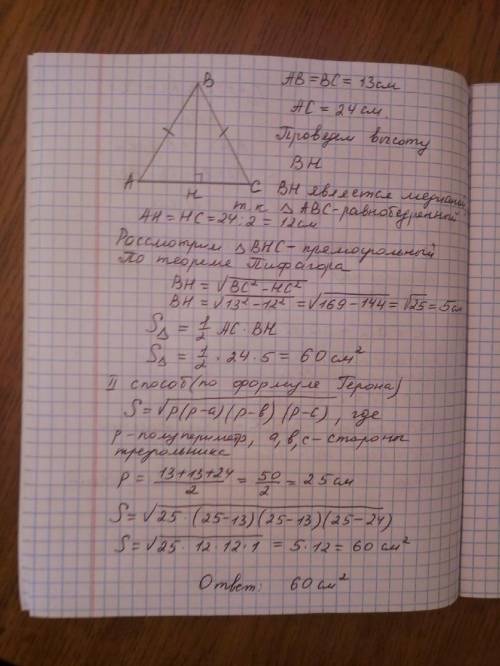 B
A
H
C
AB = BC = 13 см
AC = 24 см.
Проведем высоту
BH
BH является медианой,
т.к. △ ABC - равнобедренный
AH = HC = 24 : 2 = 12 см
Рассмотрим △ BHC - прямоугольный
По теореме Пифагора
BH = √(BC² - HC²)
BH = √(13² - 12²) = √(169 - 144) = √25 = 5 см
S△ = 1/2 AC · BH
S△ = 1/2 · 24 · 5 = 60 см²
II способ (по формуле Герона)
S = √(p(p-a)(p-в)(p-c)), где
p - полупериметр, a, в, c - стороны
треугольника
P = (13+13+24)/2 = 50/2 = 25 см
S = √(25 · (25-13)(25-13)(25-24))
S = √(25 · 12 · 12 · 1) = 5 · 12 = 60 см²
Ответ: 60 см²